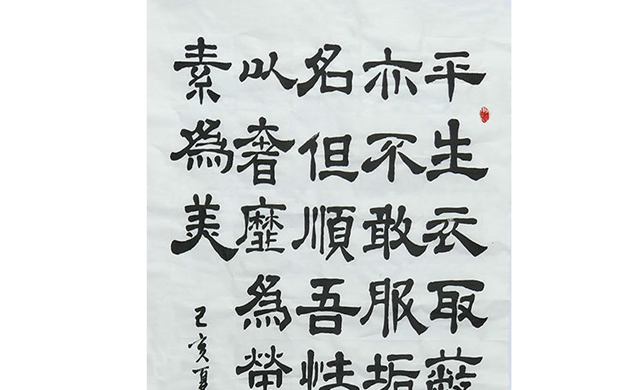 平生衣取蔽
亦不敢服垢
名但順吾性
以奢靡為榮
素為美
己亥夏